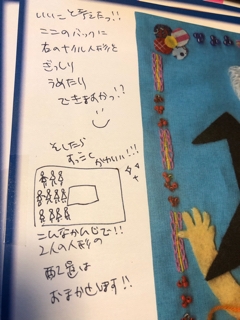 いいこと考えたっ!!
ここのバックに
右のヤイル人形を
ぎっしり
うめたり
できますかっ!?
そしたら
すっごく
かわいい!!!
こんなかんじで!!
2人の人形の
配置は
おまかせします!!